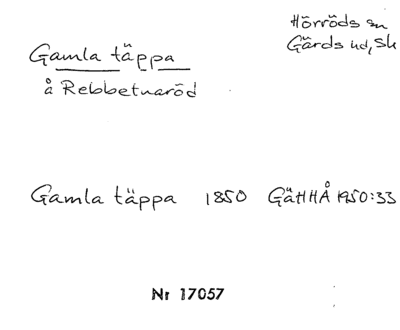 Hörröds sn
Gärds hd, Sk
Gamla täppa
å Rebbetuaröd
Gamla täppa 1850 GäHHÅ 1950:33
Nr 17057